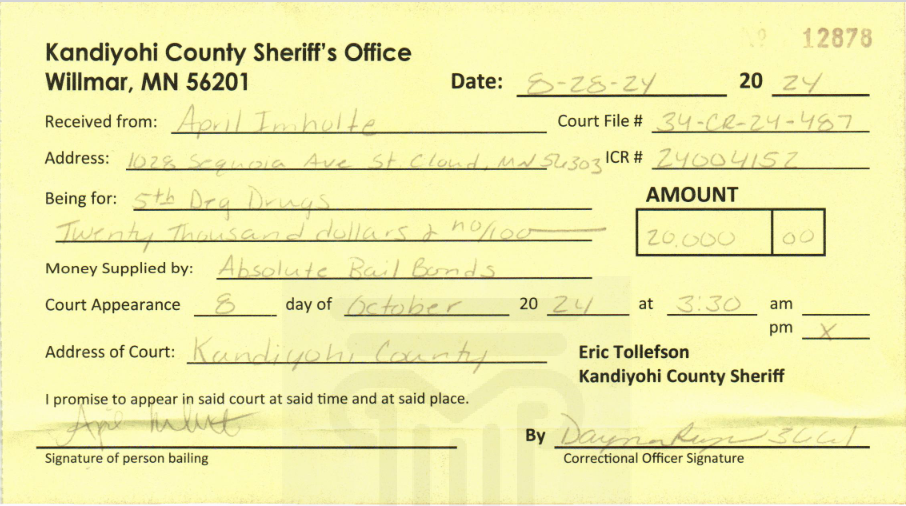 Kandiyohi County Sheriff's Office
№ 12878
Willmar, MN 56201 Date: 8-28-24 20 24
Received from: April Imholte Court File # 34-CR-24-487
Address: 1028 Sequoia Ave St. Cloud, MN 56303 ICR # 24004152
Being for: 5th Deg Drugs AMOUNT
Twenty Thousand dollars & no/100 20,000 00
Money Supplied by: Absolute Bail Bonds
Court Appearance 8 day of October 20 24 at 3:30 am
pm X
Address of Court: Kandiyohi County Eric Tollefson
Kandiyohi County Sheriff
I promise to appear in said court at said time and at said place.
April Imholte By 3661
Signature of person bailing Correctional Officer Signature